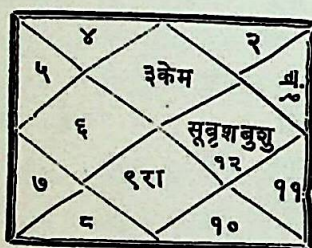 ४ २
५ ३केम चं१
६ सूवृशबुशु
१२
७ ९रा ११
८ १०